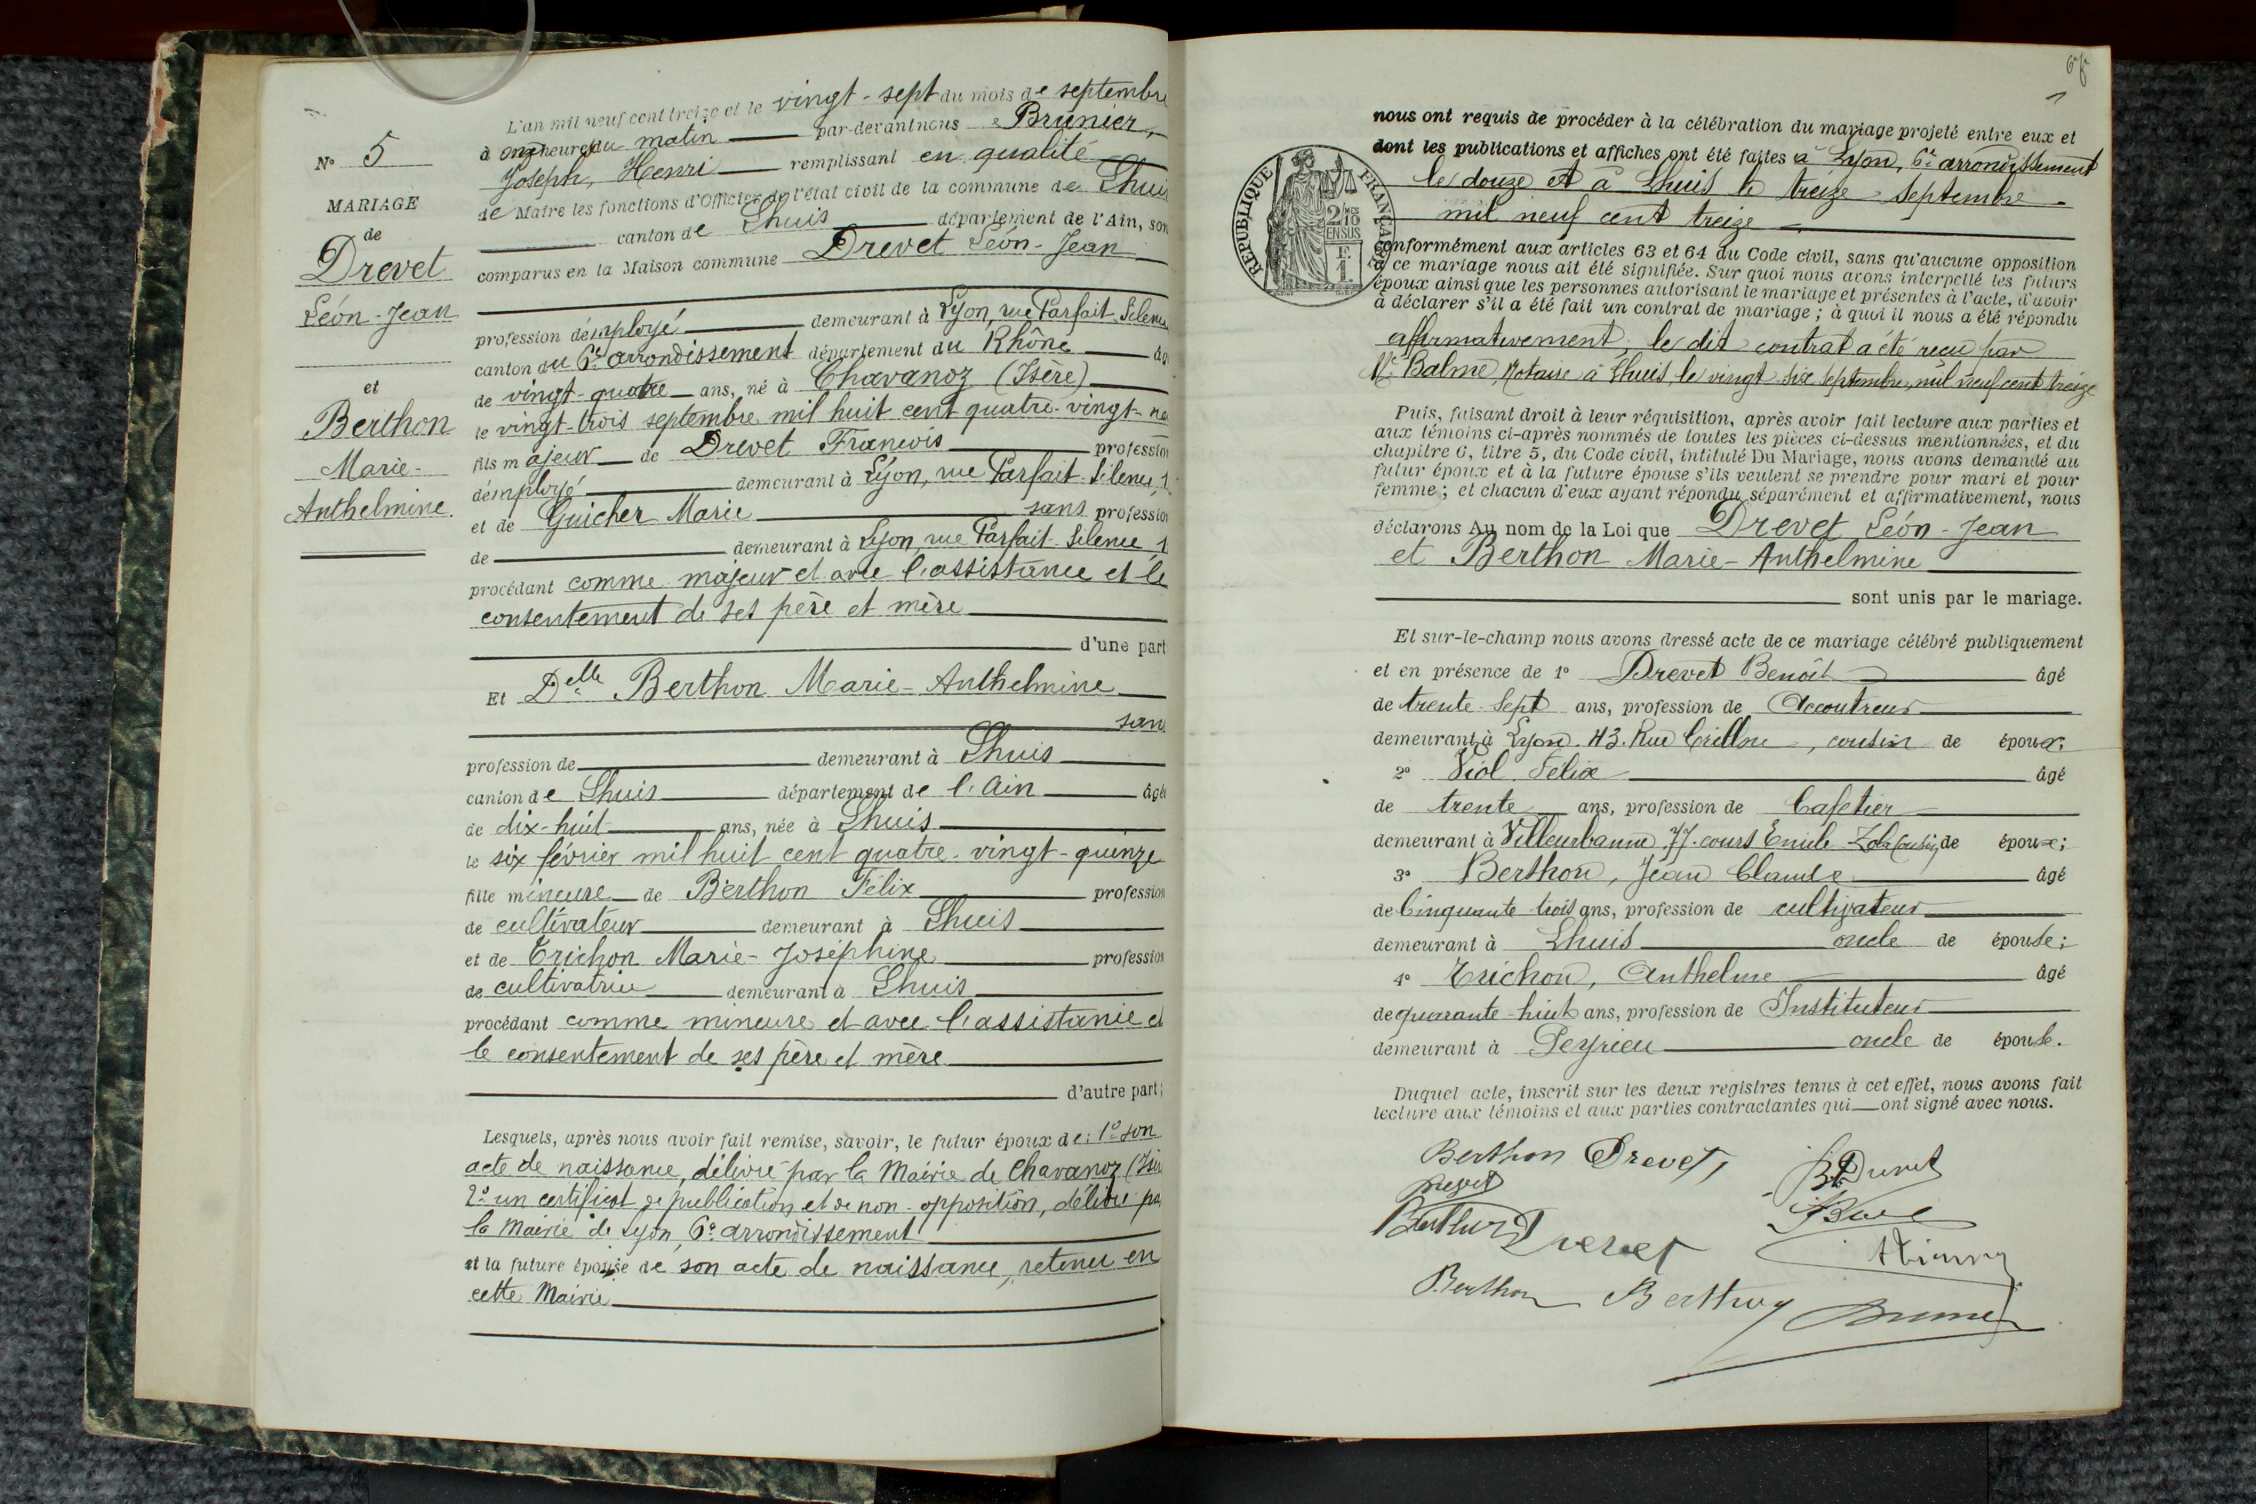 N° 5
MARIAGE
de
Drevet
Léon-Jean
et
Berthon
Marie-
Anthelmine.
L'an mil neuf cent treize et le vingt-sept du mois de septembre
à onze heures du matin par-devant nous Brunier,
Joseph, Henri remplissant en qualité
de Maire les fonctions d'Officier de l'état civil de la commune de Lhuis
canton de Lhuis département de l'Ain, son
comparus en la Maison commune Drevet Léon-Jean
profession d'employé demeurant à Lyon, rue Parfait-Silence
canton du 6e arrondissement département du Rhône âg
de vingt-quatre ans, né à Chavanoz (Isère)
le vingt-trois septembre mil huit cent quatre-vingt-ne
fils majeur de Drevet François profession
d'employé demeurant à Lyon, rue Parfait-Silence, 1
et de Guicher Marie sans profession
de demeurant à Lyon, rue Parfait-Silence, 1
procédant comme majeur et avec l'assistance et le
consentement de ses père et mère
d'une part
Et Delle Berthon Marie-Anthelmine
sans
profession de demeurant à Lhuis
canton de Lhuis département de l'Ain âgée
de dix-huit ans, née à Lhuis
le six février mil huit cent quatre-vingt-quinze
fille mineure de Berthon Félix profession
de cultivateur demeurant à Lhuis
et de Trichon Marie-Joséphine profession
de cultivatrice demeurant à Lhuis
procédant comme mineure et avec l'assistance et
le consentement de ses père et mère
d'autre part;
Lesquels, après nous avoir fait remise, savoir, le futur époux de: 1° son
acte de naissance, délivré par la Mairie de Chavanoz (Isè
2° un certificat de publication et de non-opposition, délivré pa
la Mairie de Lyon, 6e arrondissement
et la future épouse de son acte de naissance, retenu en
cette Mairie
RÉPUBLIQUE FRANÇAISE
2/10 EN SUS
F. 1.
nous ont requis de procéder à la célébration du mariage projeté entre eux et
dont les publications et affiches ont été faites à Lyon, 6e arrondissement
le douze et à Lhuis le treize septembre
mil neuf cent treize
conformément aux articles 63 et 64 du Code civil, sans qu'aucune opposition
à ce mariage nous ait été signifiée. Sur quoi nous avons interpellé les futurs
époux ainsi que les personnes autorisant le mariage et présentes à l'acte, d'avoir
à déclarer s'il a été fait un contrat de mariage; à quoi il nous a été répondu
affirmativement, le dit contrat a été reçu par
Me Balme, Notaire à Lhuis, le vingt-six septembre mil neuf cent treize
Puis, faisant droit à leur réquisition, après avoir fait lecture aux parties et
aux témoins ci-après nommés de toutes les pièces ci-dessus mentionnées, et du
chapitre 6, titre 5, du Code civil, intitulé Du Mariage, nous avons demandé au
futur époux et à la future épouse s'ils veulent se prendre pour mari et pour
femme; et chacun d'eux ayant répondu séparément et affirmativement, nous
déclarons Au nom de la Loi que Drevet Léon-Jean
et Berthon Marie-Anthelmine
sont unis par le mariage.
Et sur-le-champ nous avons dressé acte de ce mariage célébré publiquement
et en présence de 1° Drevet Benoît âgé
de trente-sept ans, profession de Accoutreur
demeurant à Lyon. 43. Rue Crillon, cousin de époux;
2° Viol. Félix âgé
de trente ans, profession de Cafetier
demeurant à Villeurbanne 77. cours Emile-Zola Cousin de époux;
3° Berthon, Jean Claude âgé
de Cinquante trois ans, profession de cultivateur
demeurant à Lhuis oncle de épouse;
4° Trichon, Anthelme âgé
de quarante-huit ans, profession de Instituteur
demeurant à Peyrieu oncle de épouse.
Duquel acte, inscrit sur les deux registres tenus à cet effet, nous avons fait
lecture aux témoins et aux parties contractantes qui ont signé avec nous.
Berthon Drevet
Drevet
Berthon Berthon Brunier